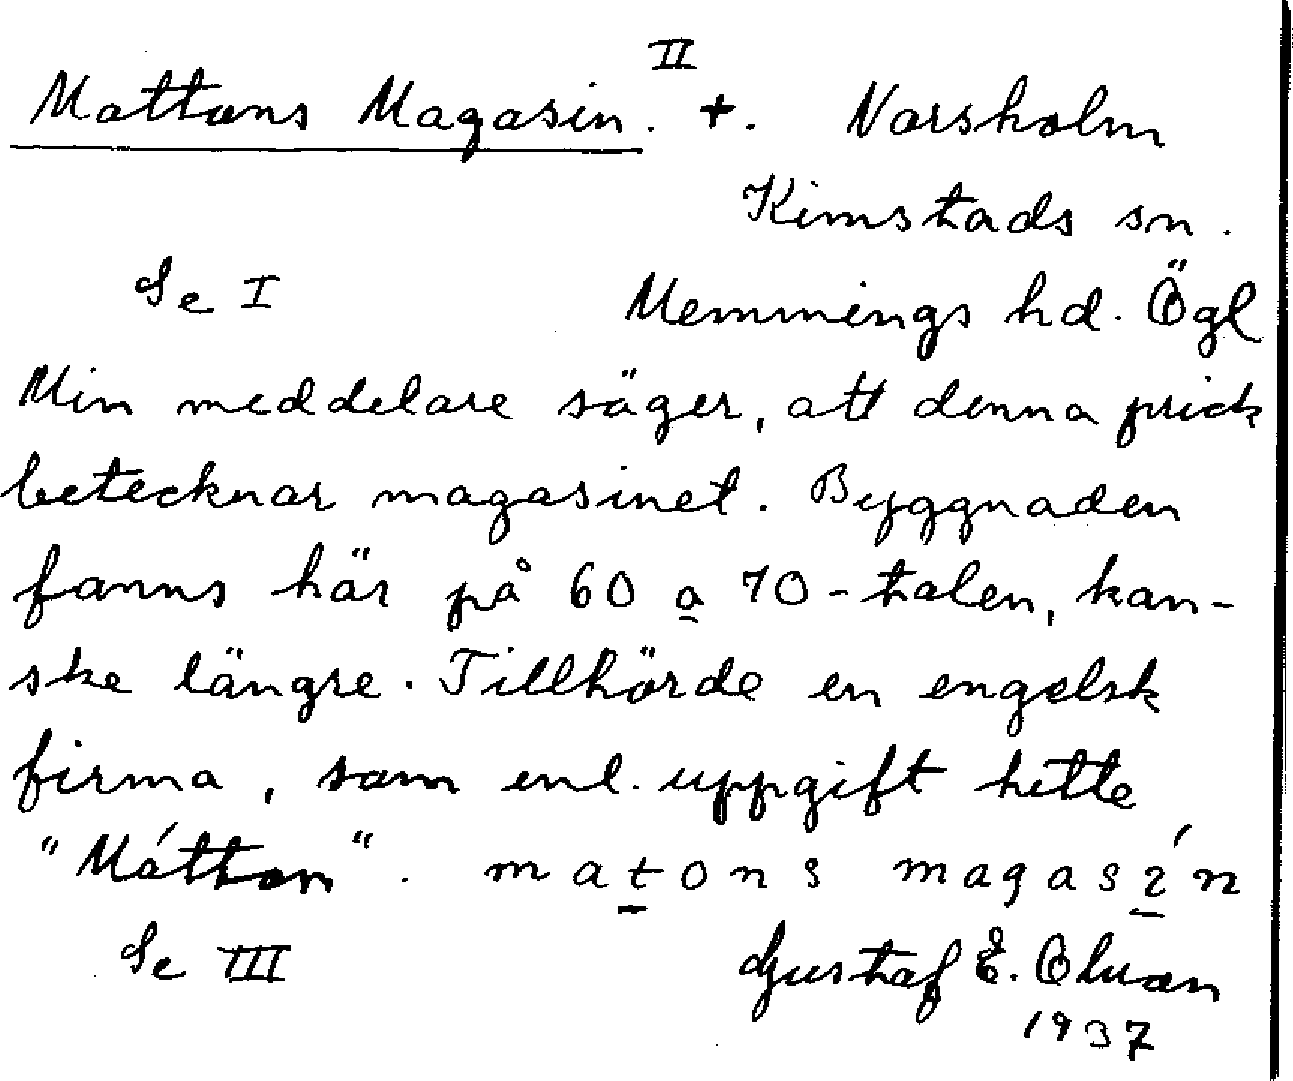 II
Mattons Magasin. +. Norsholm
Kimstads sn.
Se I Memmings hd. Ögl
Min meddelare säger, att denna prick
betecknar magasinet. Byggnaden
fanns här på 60 a 70-talen, kan-
ske längre. Tillhörde en engelsk
firma, som enl. uppgift hette
"Mátton". matons magasín
Se III Gustaf E.
1937